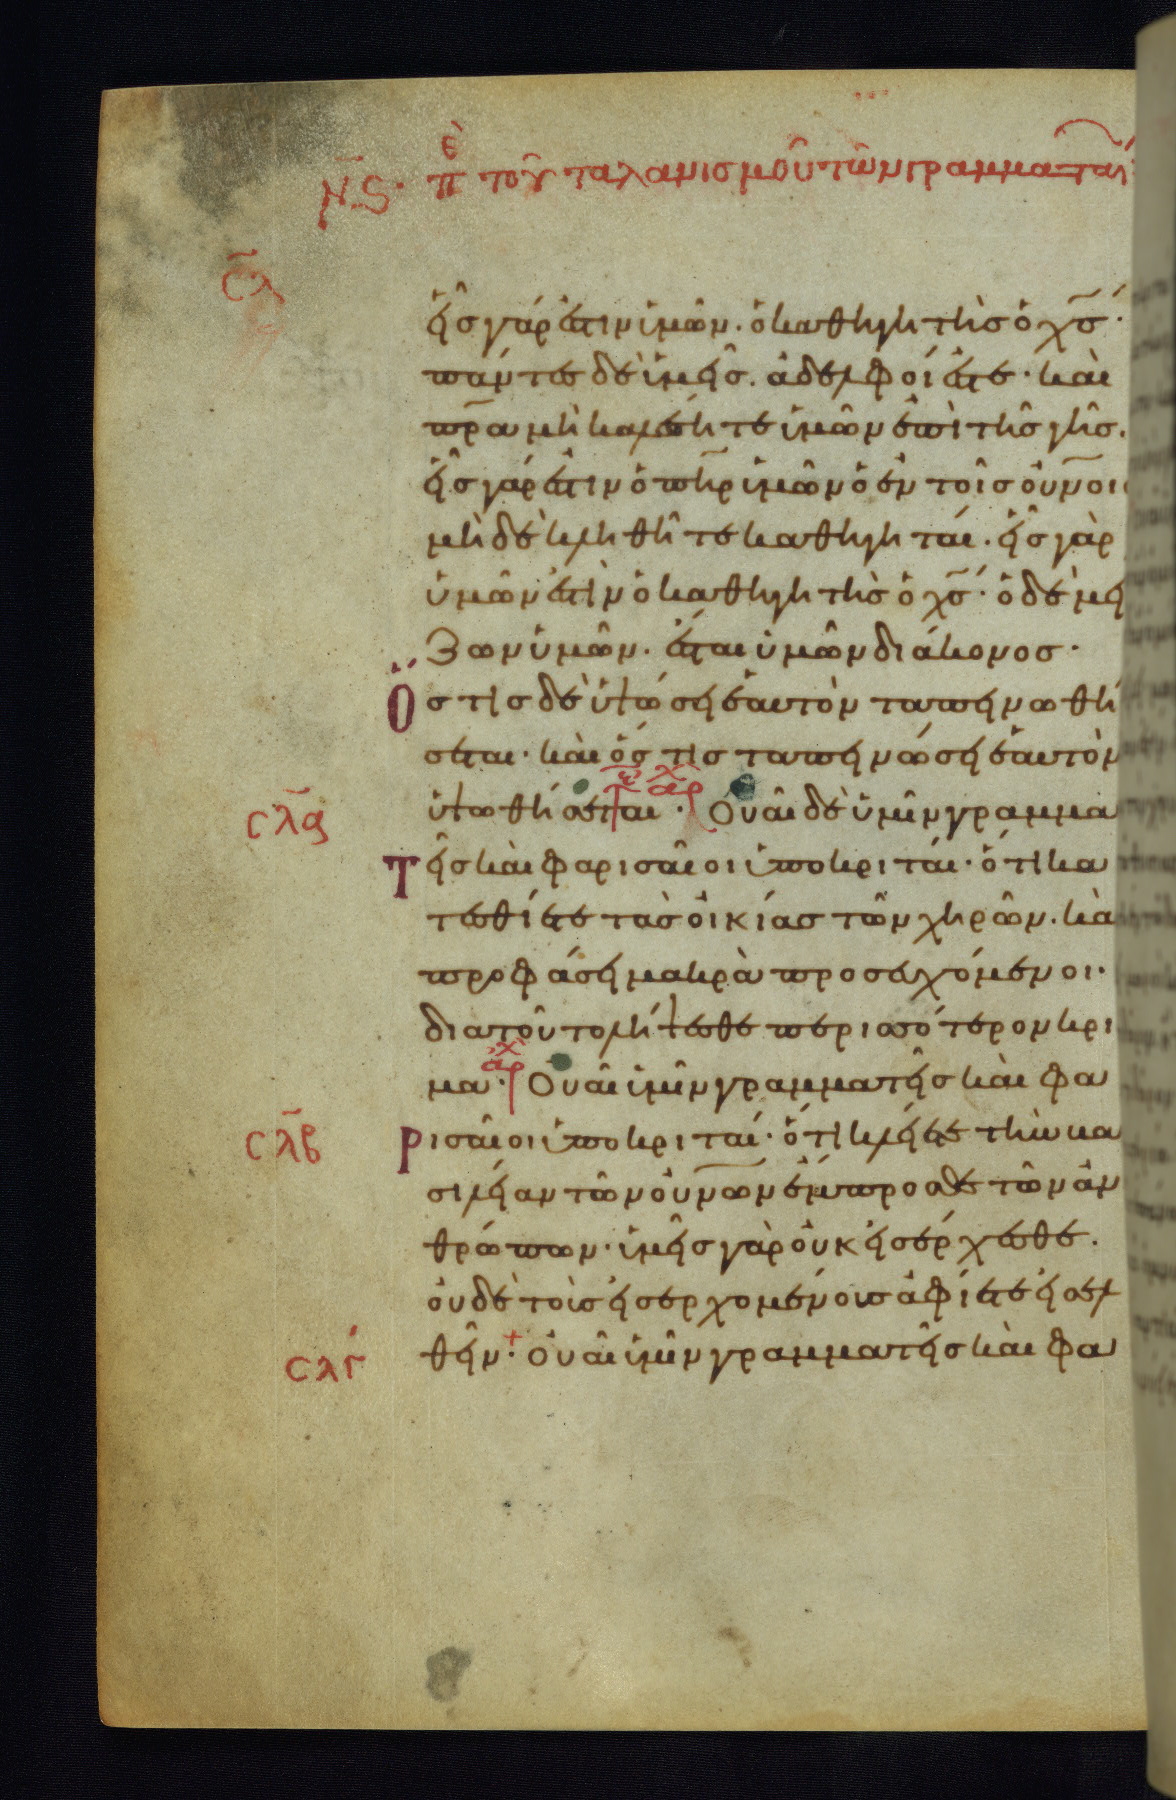 ν̅ϛ· πὲ τοῦ ταλανισμοῦ τῶν γραμματαί
σ̅λ
εἷσ γάρ ἐστιν ὑμῶν. ὁ καθηγητὴσ ὁ χ̅σ̅·
πάντεσ δὲ ὑμεῖσ. ἀδελφοί ἐστε· καὶ
π̅ρ̅α μὴ καλέσητε ὑμῶν ἐπὶ τῆσ γῆσ.
εἷσ γάρ ἐστιν ὁ π̅η̅ρ̅ ὑμῶν ὁ ἐν τοῖσ οὐ̅ν̅οι
μὴ δὲ κληθῆτε καθηγηταί. εἷσ γὰρ
ὑμῶν ἐστὶν ὁ καθηγητὴσ ὁ χ̅σ̅· ὁ δὲ μεί
ζων ὑμῶν. ἔσται ὑμῶν διάκονοσ·
Ὅστισ δὲ ὑψώσει ἑαυτὸν ταπεινωθή
σεται· καὶ ὅστισ ταπεινώσει ἑαυτὸν
σ̅λ̅α ὑψωθήσεται· τε αρχ Οὐαὶ δὲ ὑμῖν γραμμα
τεῖσ καὶ φαρισαῖοι ὑποκριταί· ὅτι κα
τεσθίετε τὰσ οἰκίασ τῶν χηρῶν. καὶ
προφάσει μακρὰ προσευχόμενοι·
διατοῦτο λήψεσθε περισσότερον κρι
μα· αρχ Οὐαὶ ὑμῖν γραμματεῖσ καὶ φα
σ̅λ̅β ρισαῖοι ὑποκριταί· ὅτι κλείετε τὴν βα
σιλείαν τῶν οὐ̅ν̅ων ἔμπροσθε τῶν ἀν
θρώπων· ὑμεῖσ γὰρ οὐκ εἰσέρχεσθε.
οὐδὲ τοὺσ εἰσερχομένουσ ἀφίετε εἰσελ
σλγ θεῖν· + Οὐαὶ ὑμῖν γραμματεῖσ καὶ φα